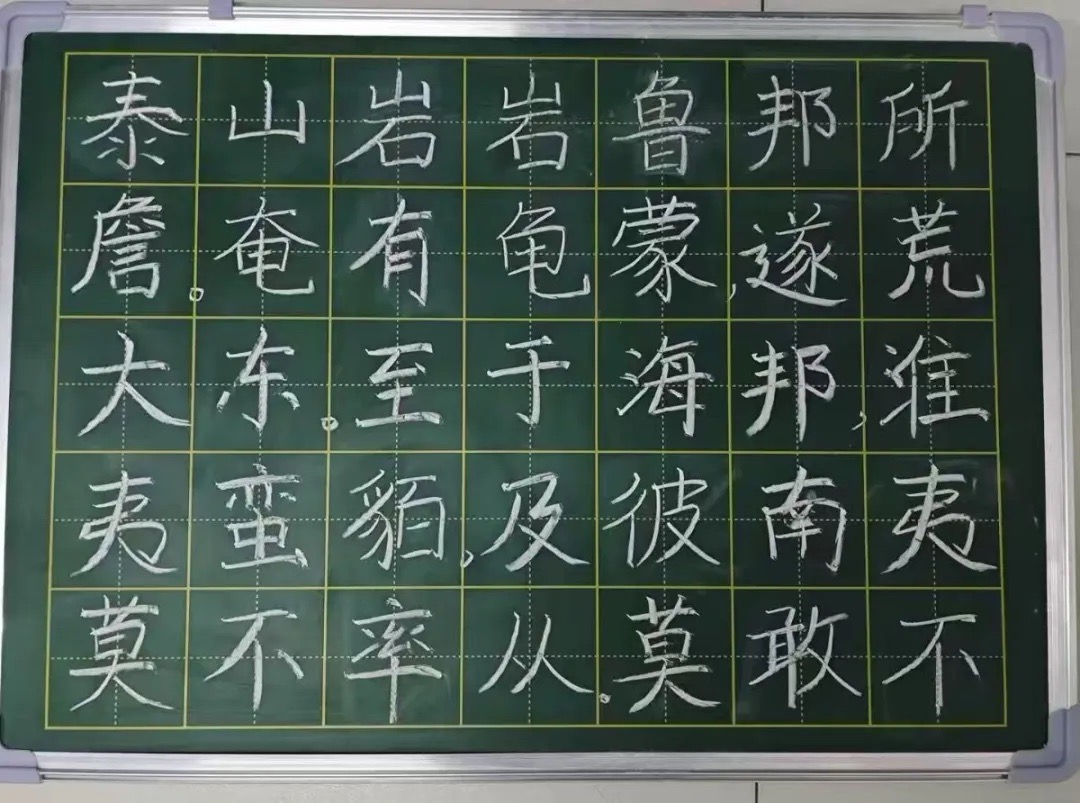 泰山岩岩鲁邦所
詹。奄有龟蒙,遂荒
大东。至于海邦,淮
夷蛮貊,及彼南夷
莫不率从.莫敢不